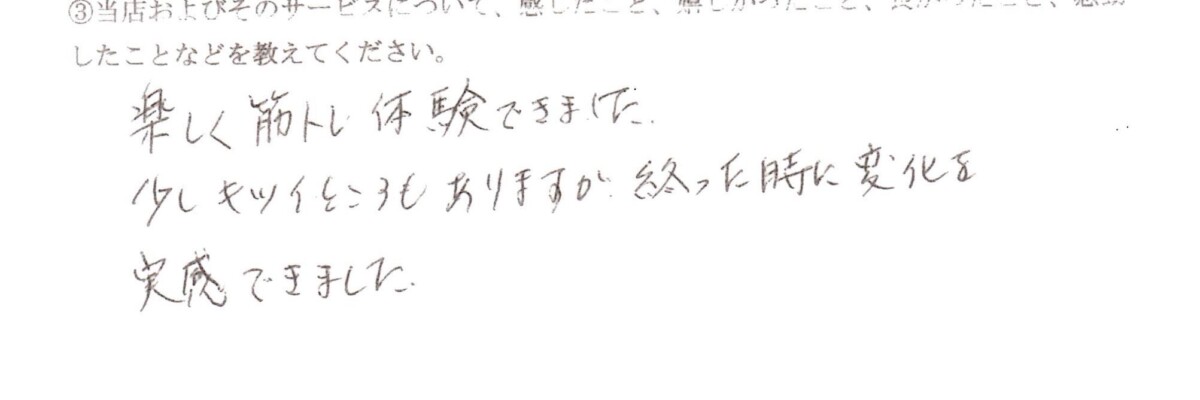 ③当店およびそのサービスについて、感じたこと、嬉しかったこと、良かったこと、感動
したことなどを教えてください。
楽しく筋トレ体験できました.
少しキツイところもありますが.終った時に変化を
実感できました.